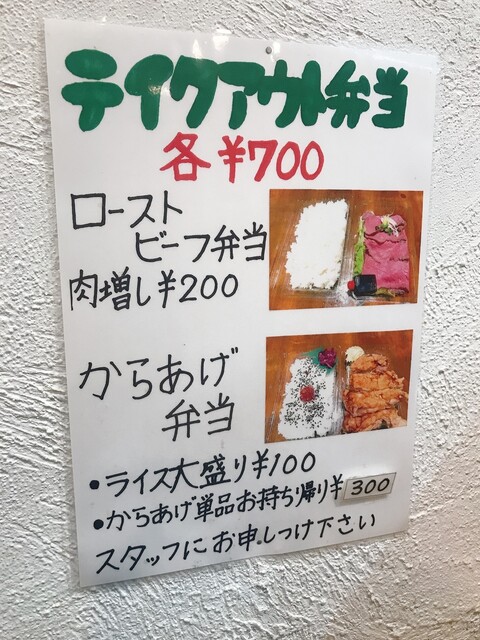 テイクアウト弁当
各¥700
ロースト
ビーフ弁当
肉増し¥200
からあげ
弁当
•ライス大盛り¥100
•からあげ単品お持ち帰り¥300
スタッフにお申しつけ下さい